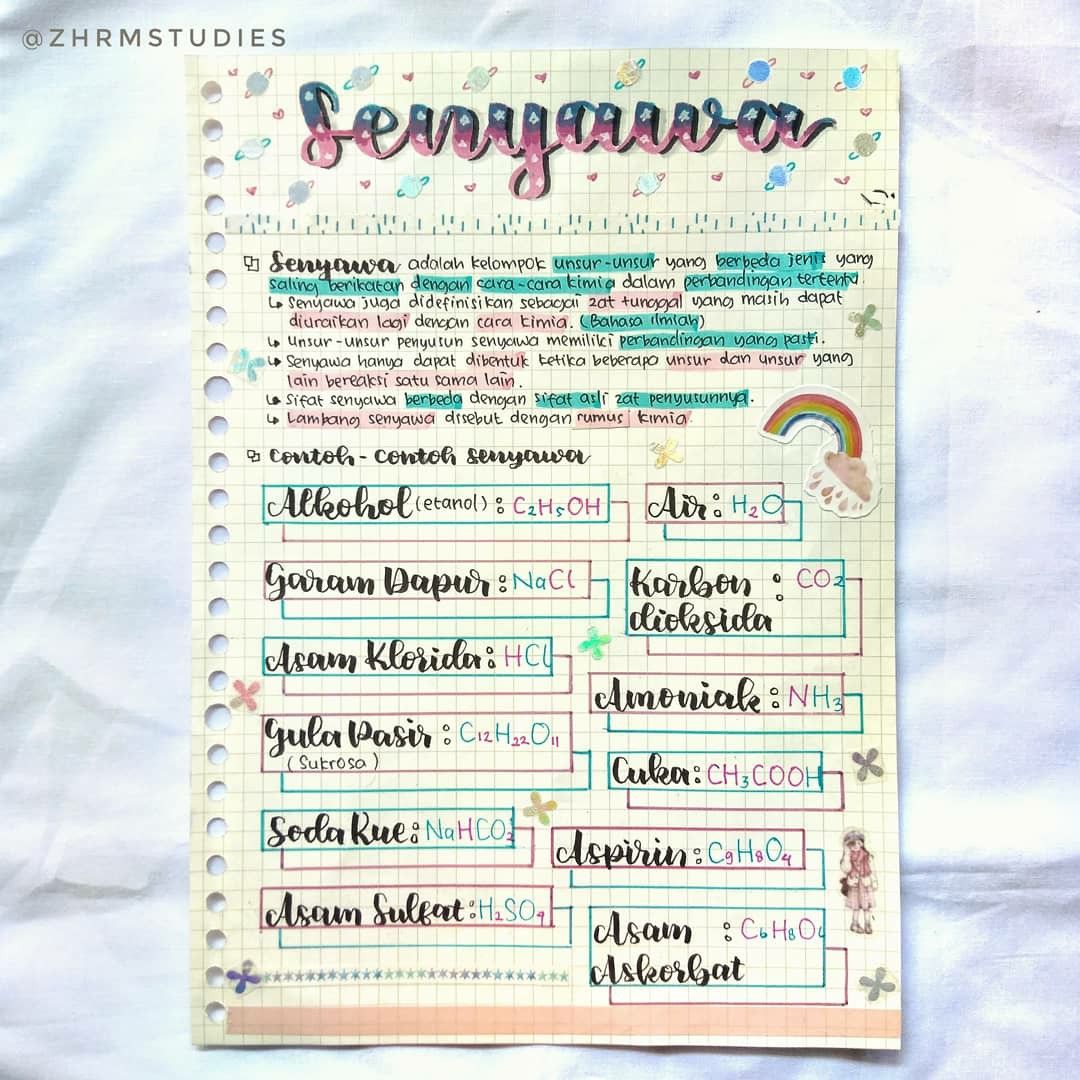 @ZHRMSTUDIES
Senyawa
Senyawa adalah kelompok unsur-unsur yang berbeda jenis yang
saling berikatan dengan cara-cara kimia dalam perbandingan tertentu.
↳ Senyawa juga didefinisikan sebagai zat tunggal yang masih dapat
diuraikan lagi dengan cara kimia. (Bahasa ilmiah)
↳ Unsur-unsur penyusun senyawa memiliki perbandingan yang pasti.
↳ Senyawa hanya dapat dibentuk ketika beberapa unsur dan unsur yang
lain bereaksi satu sama lain.
↳ Sifat senyawa berbeda dengan sifat asli zat penyusunnya.
↳ Lambang senyawa disebut dengan rumus kimia.
Contoh-contoh senyawa
Alkohol (etanol) : C₂H₅OH
Air : H₂O
Garam Dapur : NaCl
Karbon : CO₂
dioksida
Asam Klorida : HCl
Amoniak : NH₃
Gula Pasir : C₁₂H₂₂O₁₁
(Sukrosa)
Cuka : CH₃COOH
Soda Kue : NaHCO₃
Aspirin : C₉H₈O₄
Asam Sulfat : H₂SO₄
Asam : C₆H₈O₆
Askorbat